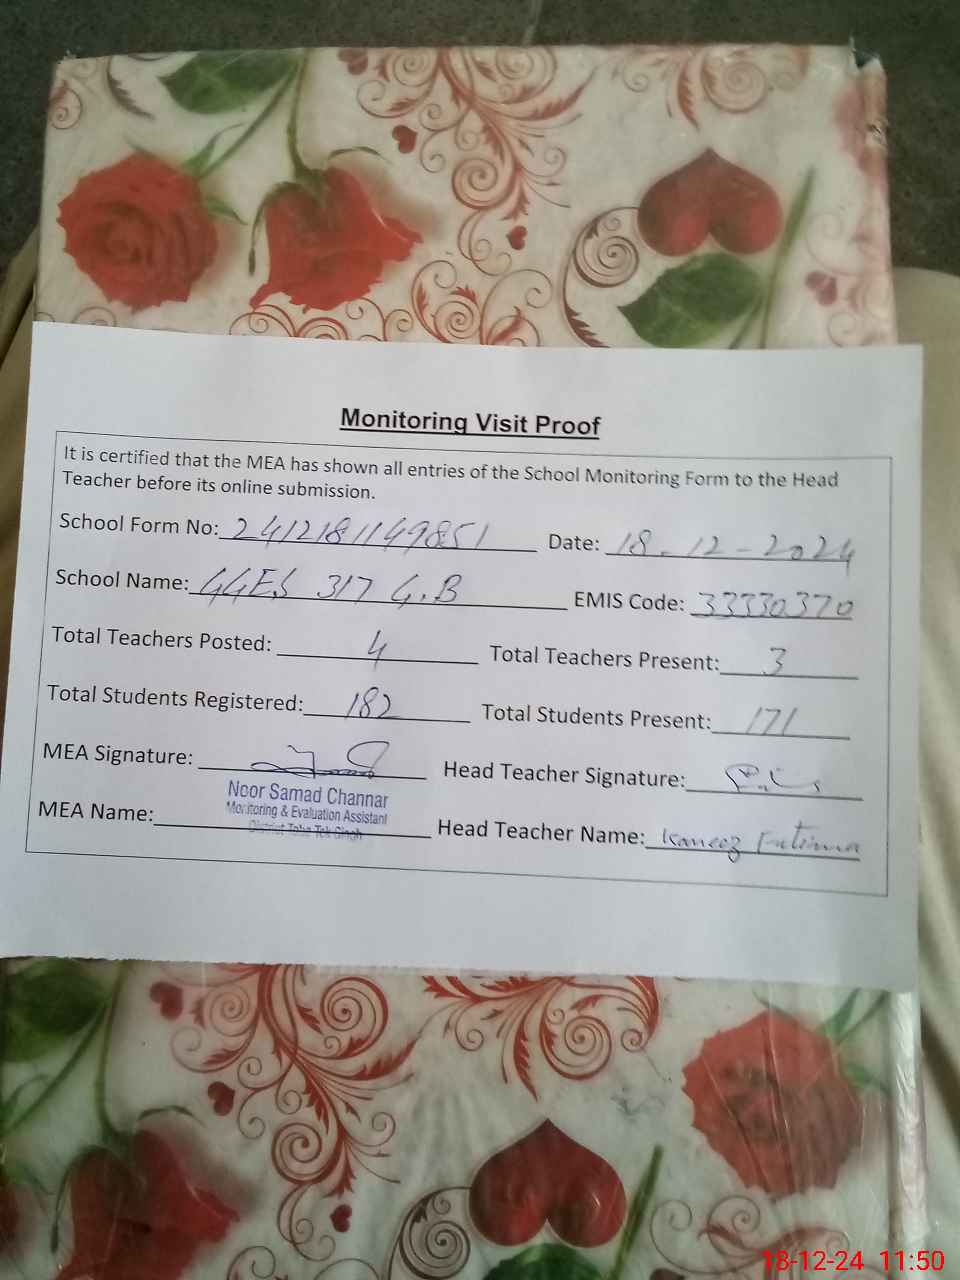 Monitoring Visit Proof
It is certified that the MEA has shown all entries of the School Monitoring Form to the Head
Teacher before its online submission.
School Form No: 2412181149851 Date: 18-12-2024
School Name: GGES 317 G.B EMIS Code: 33330370
Total Teachers Posted: 4 Total Teachers Present: 3
Total Students Registered: 182 Total Students Present: 171
MEA Signature: Head Teacher Signature:
Noor Samad Channar
Monitoring & Evaluation Assistant
District Toba Tek Singh
MEA Name: Head Teacher Name: Kaneez Fatima
18-12-24 11:50